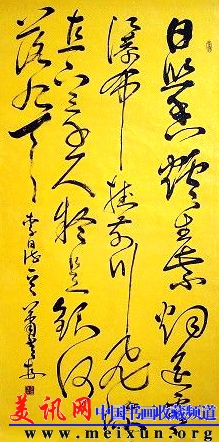 日照香爐生紫烟遥看
瀑布挂前川飛流
直下三千尺疑是銀河
落九天
李白詩
美讯网 中国书画收藏频道
www.meixun.org